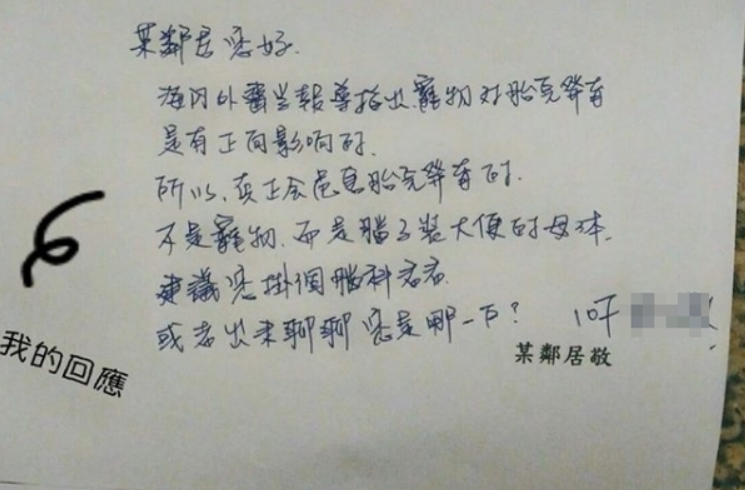 某鄰居您好.
海內外醫學報導指出寵物对胎兒發育
是有正向影响的.
所以,真正会危害胎兒發育的.
不是寵物.而是腦子裝大便的母体.
建議您掛個腦科看看.
或者出來聊聊您是哪一戶?
10F
某鄰居敬
我的回應